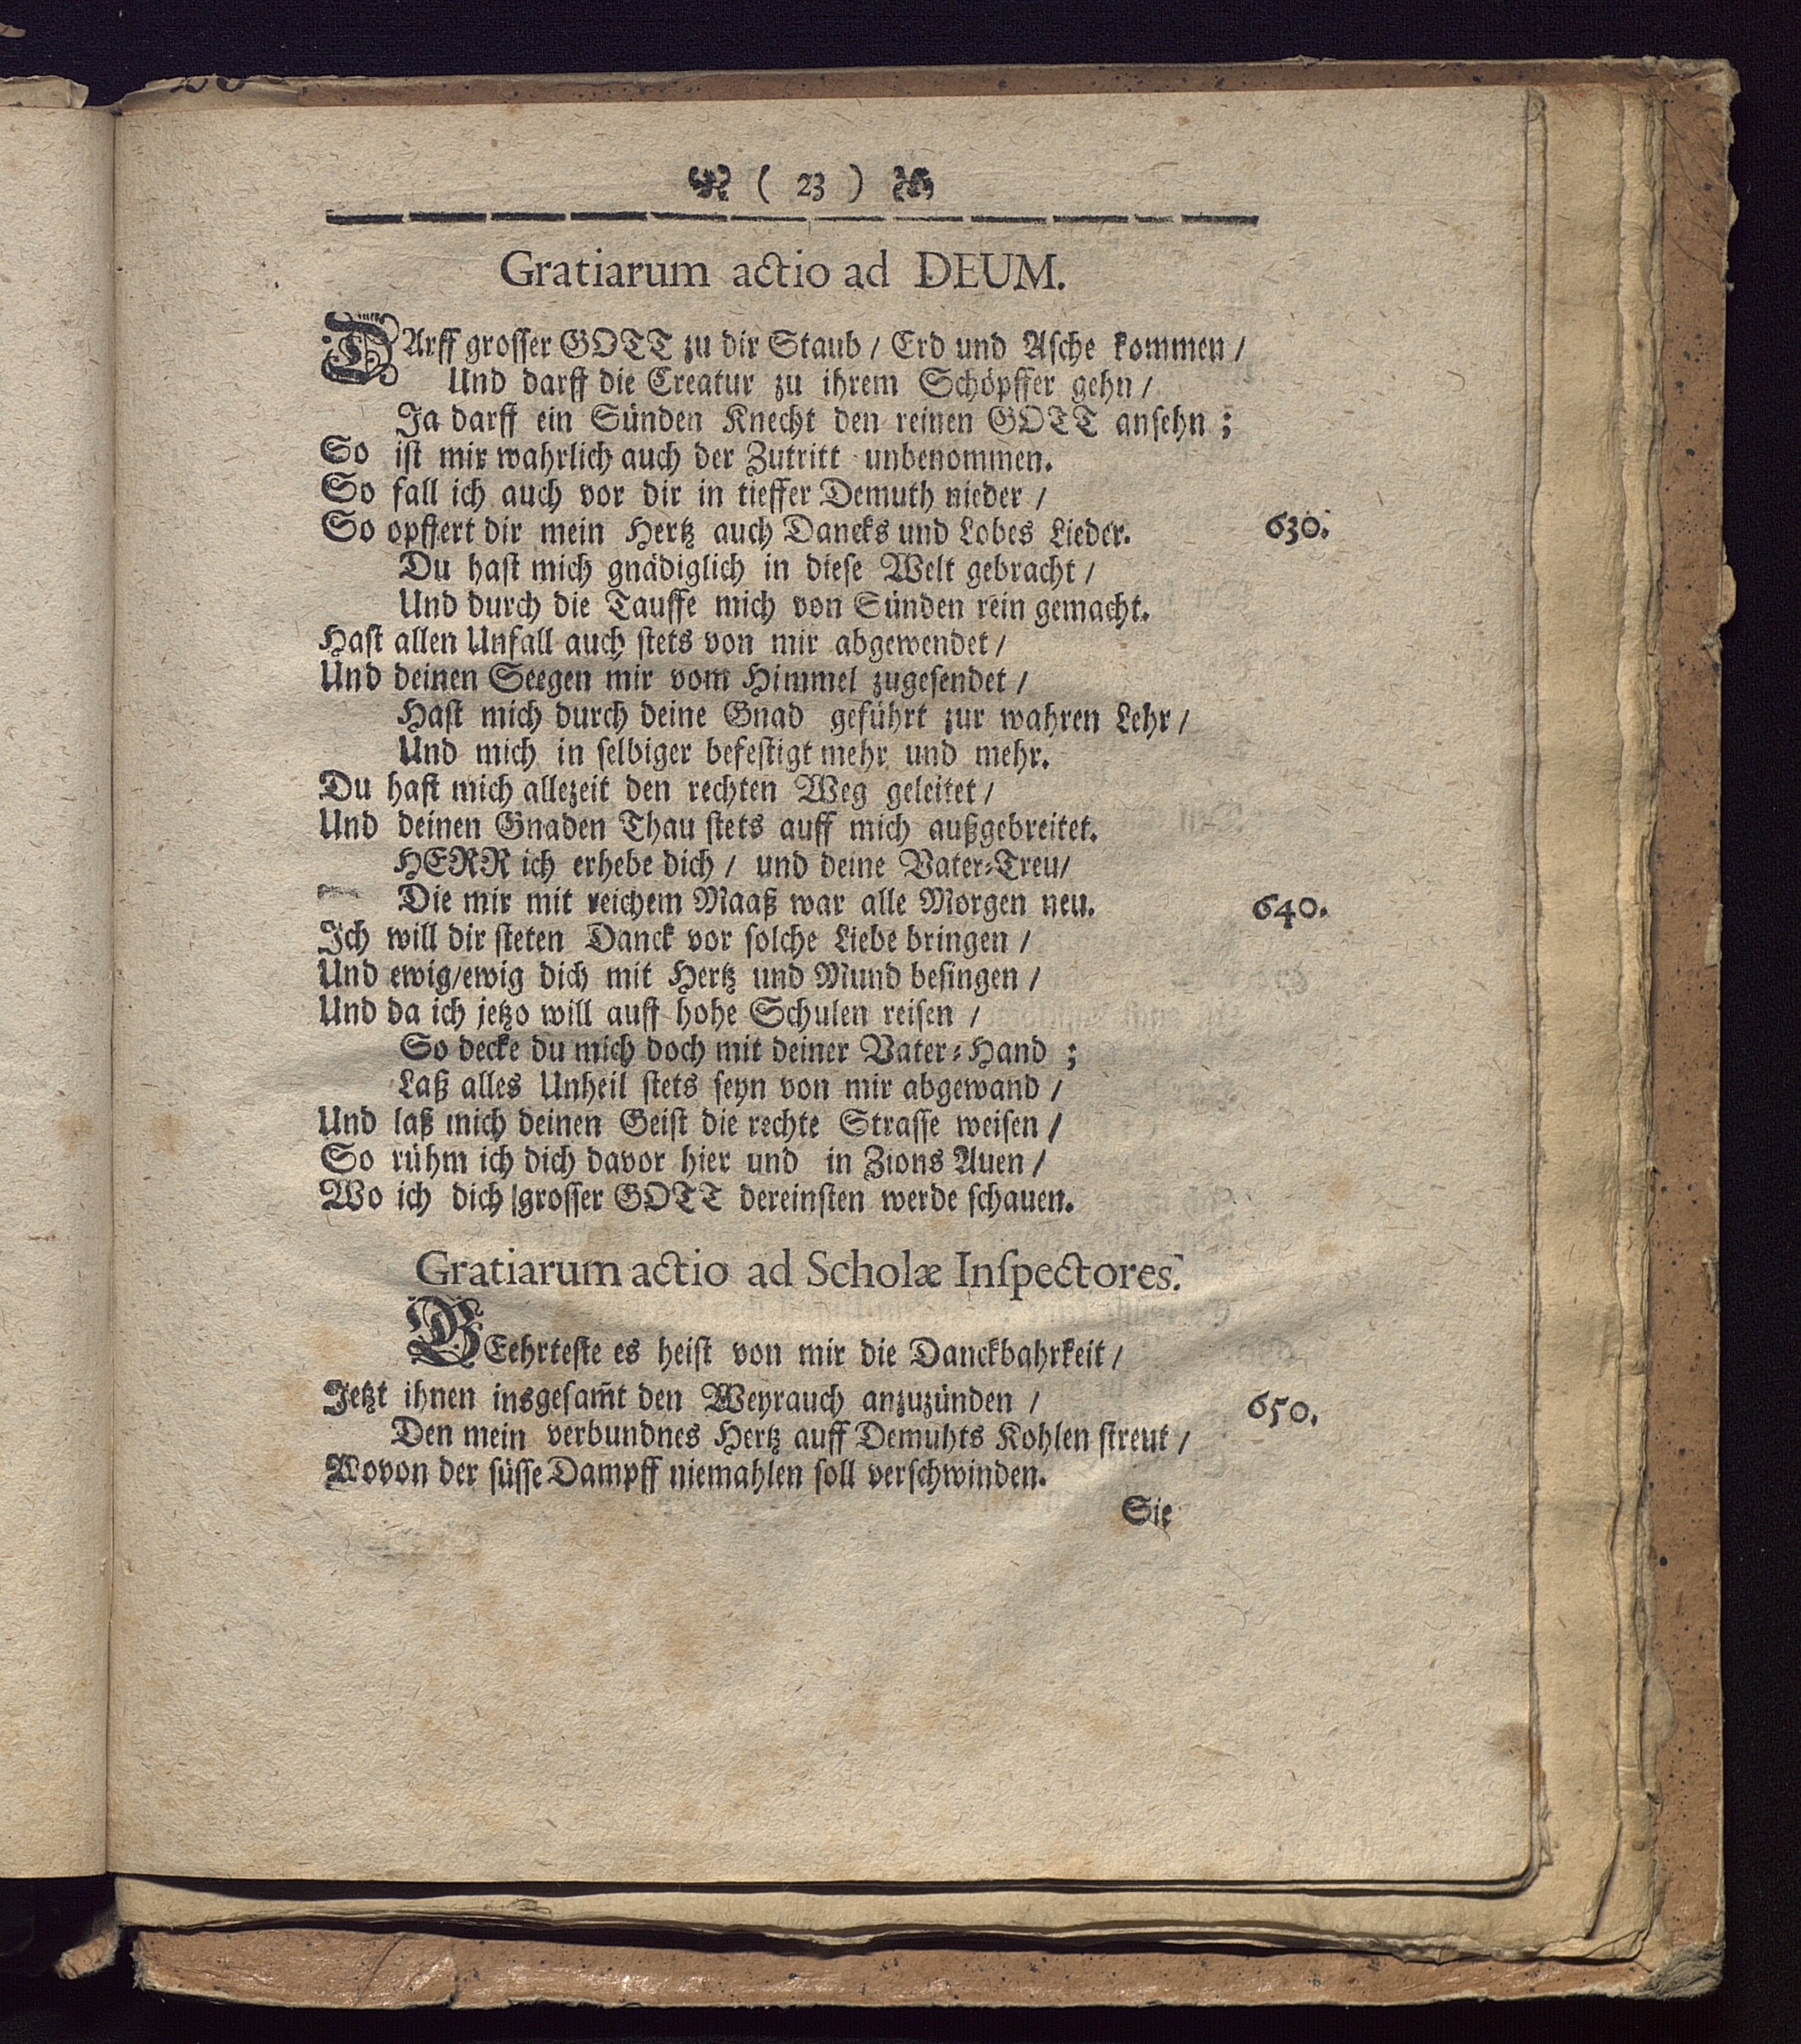 ( 23 )
Gratiarum actio ad DEUM.
DArff grosser GOTT zu dir Staub / Erd und Asche kommen /
Und darff die Creatur zu ihrem Schöpffer gehn /
Ja darff ein Sünden Knecht den reinen GOTT ansehn ;
So ist mir wahrlich auch der Zutritt unbenommen.
So fall ich auch vor dir in tieffer Demuth nieder /
So opffert dir mein Hertz auch Dancks und Lobes Lieder. 630.
Du hast mich gnädiglich in diese Welt gebracht /
Und durch die Tauffe mich von Sünden rein gemacht.
Hast allen Unfall auch stets von mir abgewendet /
Und deinen Seegen mir vom Himmel zugesendet /
Hast mich durch deine Gnad geführt zur wahren Lehr /
Und mich in selbiger befestigt mehr und mehr.
Du hast mich allezeit den rechten Weg geleitet /
Und deinen Gnaden Thau stets auff mich außgebreitet.
HERR ich erhebe dich / und deine Vater-Treu/
Die mir mit reichem Maaß war alle Morgen neu. 640.
Ich will dir steten Danck vor solche Liebe bringen /
Und ewig/ewig dich mit Hertz und Mund besingen /
Und da ich jetzo will auff hohe Schulen reisen /
So decke du mich doch mit deiner Vater-Hand ;
Laß alles Unheil stets seyn von mir abgewand /
Und laß mich deinen Geist die rechte Strasse weisen /
So rühm ich dich davor hier und in Zions Auen /
Wo ich dich /grosser GOTT dereinsten werde schauen.
Gratiarum actio ad Scholæ Inſpectores.
GEehrteste es heist von mir die Danckbahrkeit /
Jetzt ihnen insgesam̃t den Weyrauch anzuzünden / 650.
Den mein verbundnes Hertz auff Demuhts Kohlen streut /
Wovon der süsse Dampff niemahlen soll verschwinden.
Sie